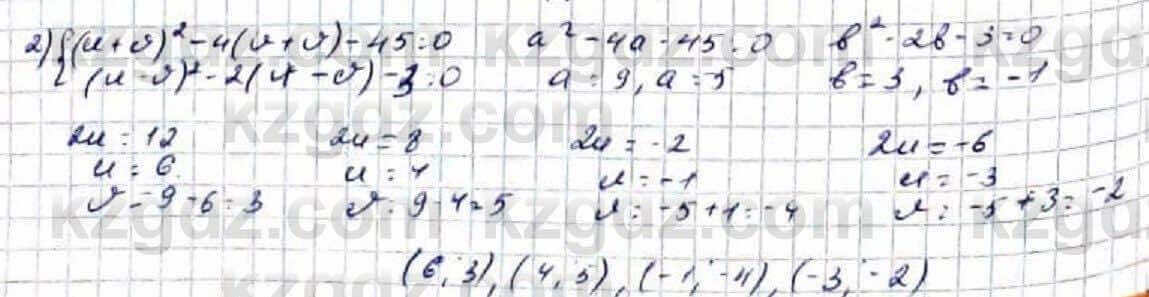 2) {(u+v)² - 4(u+v) - 45 = 0   a² - 4a - 45 = 0   b² - 2b - 3 = 0
{(u-v)² - 2(u-v) - 3 = 0   a = 9, a = 5   b = 3, b = -1
2u = 12   2u = 8   2u = -2   2u = -6
u = 6   u = 4   u = -1   u = -3
v = 9 - 6 = 3   v = 9 - 4 = 5   v = -5 + 1 = -4   v = -5 + 3 = -2
(6; 3), (4; 5), (-1; -4), (-3; -2)
kzgdz.com